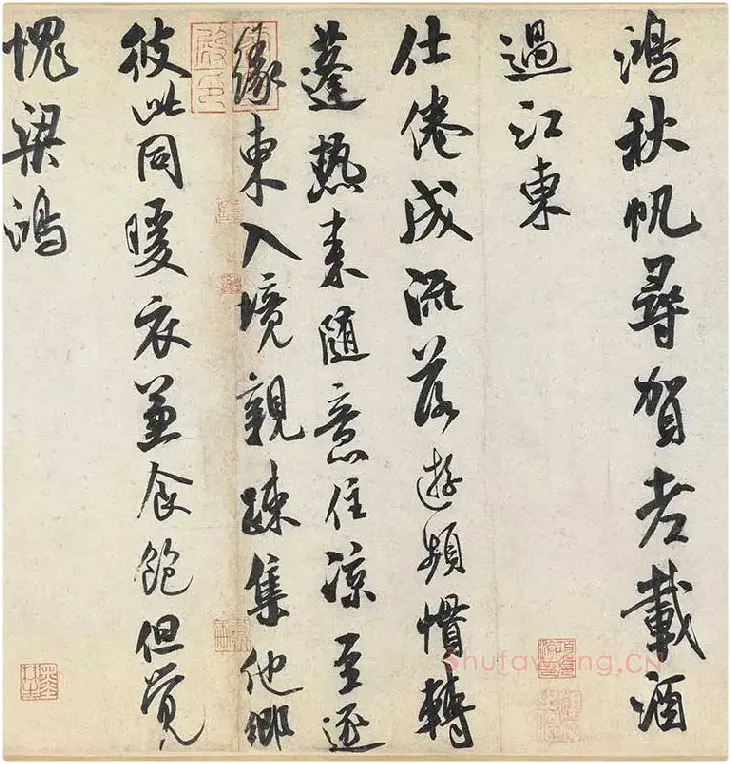 鴻秋帆尋賀老載酒
過江東
仕倦成流落遊頻慣轉
蓬熱来随意住凉至逐
緣東入境親疎集他鄉
彼此同暖衣兼食飽但覺
愧梁鴻
Shufawang.CN